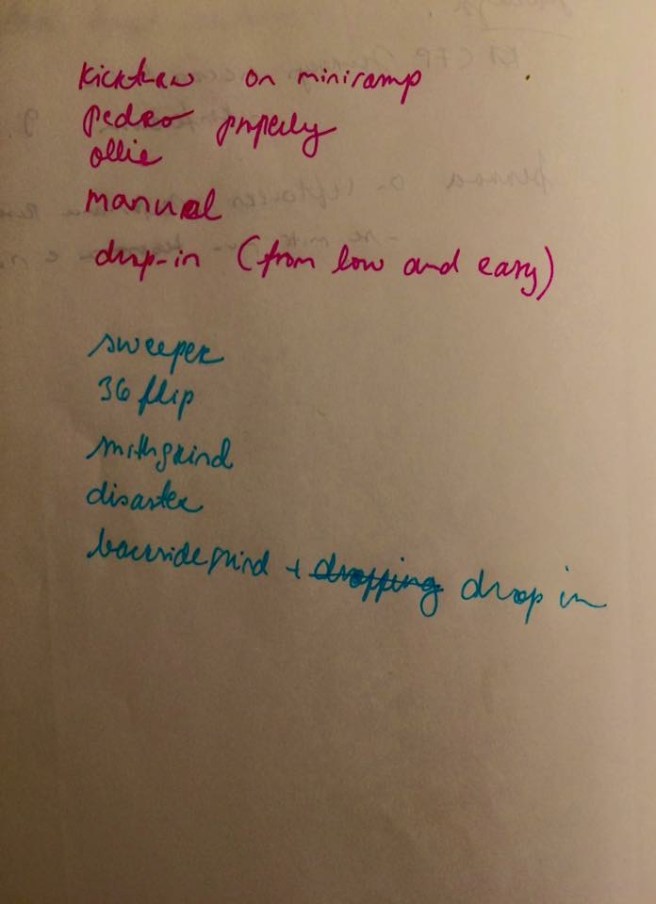 kickturn on miniramp
pedro properly
ollie
manual
drop-in (from low and easy)
sweeper
36 flip
smithgrind
disaster
backside grind + dropping drop in